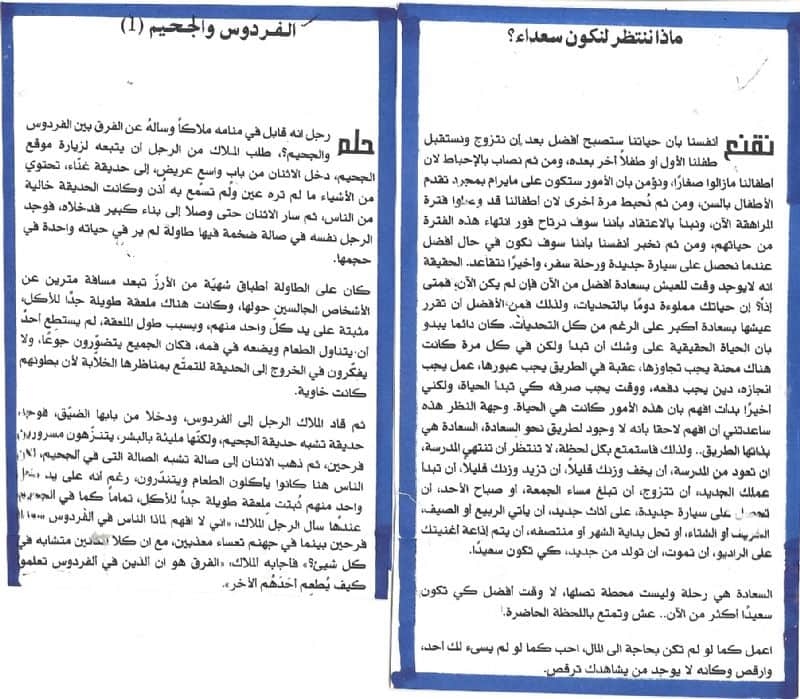 ماذا ننتظر لنكون سعداء؟
نقنع أنفسنا بأن حياتنا ستصبح أفضل بعد أن نتزوج ونستقبل
طفلنا الأول أو طفلاً أخر بعده، ومن ثم نصاب بالإحباط لان
اطفالنا مازالوا صغارًا، ونؤمن بأن الأمور ستكون على مايرام بمجرد تقدم
الأطفال بالسن، ومن ثم نُحبط مرة أخرى لان أطفالنا قد وصلوا فترة
المراهقة الآن، ونبدأ بالاعتقاد بأننا سوف نرتاح فور انتهاء هذه الفترة
من حياتهم، ومن ثم نخبر أنفسنا بأننا سوف نكون في حال أفضل
عندما نحصل على سيارة جديدة ورحلة سفر، وأخيرًا نتقاعد. الحقيقة
انه لايوجد وقت للعيش بسعادة أفضل من الآن فإن لم يكن الآن، فمتى
إذاً؟ إن حياتك مملوءة دومًا بالتحديات، ولذلك فمن الأفضل أن تقرر
عيشها بسعادة أكبر على الرغم من كل التحديات. كان دائما يبدو
بأن الحياة الحقيقية على وشك أن تبدأ ولكن في كل مرة كانت
هناك محنة يجب تجاوزها، عقبة في الطريق يجب عبورها، عمل يجب
انجازه، دين يجب دفعه، ووقت يجب صرفه كي تبدأ الحياة، ولكني
أخيرًا بدأت افهم بان هذه الأمور كانت هي الحياة. وجهة النظر هذه
ساعدتني أن افهم لاحقا بأنه لا وجود لطريق نحو السعادة، السعادة هي
بذاتها الطريق.. ولذلك فاستمتع بكل لحظة، لا تنتظر أن تنتهي المدرسة،
ان تعود من المدرسة، أن يخف وزنك قليلاً، أن تزيد وزنك قليلاً، أن تبدأ
عملك الجديد، أن تتزوج، أن تبلغ مساء الجمعة، أو صباح الأحد، أن
تحصل على سيارة جديدة، على أثاث جديد، أن يأتي الربيع أو الصيف،
الخريف أو الشتاء، أو تحل بداية الشهر أو منتصفه، أن يتم إذاعة أغنيتك
على الراديو، أن تموت، أن تولد من جديد، كي تكون سعيدًا.
السعادة هي رحلة وليست محطة تصلها، لا وقت أفضل كي تكون
سعيدًا أكثر من الآن.. عش وتمتع باللحظة الحاضرة.
اعمل كما لو لم تكن بحاجة الى المال، احب كما لو لم يسىء لك أحد،
وارقص وكأنه لا يوجد من يشاهدك ترقص.
الفردوس والجحيم (1)
حلم رجل انه قابل في منامه ملاكًا وسأله عن الفرق بين الفردوس
والجحيم؟، طلب الملاك من الرجل أن يتبعه لزيارة موقع
الجحيم، دخل الاثنان من باب واسع عريض، إلى حديقة غنّاء، تحتوي
من الأشياء ما لم تره عين ولم تسمع به أذن وكانت الحديقة خالية
من الناس، ثم سار الاثنان حتى وصلا إلى بناء كبير فدخلاه، فوجد
الرجل نفسه في صالة ضخمة فيها طاولة لم ير في حياته واحدة في
حجمها.
كان على الطاولة أطباق شهيّة من الأرزّ تبعد مسافة مترين عن
الأشخاص الجالسين حولها، وكانت هناك ملعقة طويلة جدًا للأكل،
مثبتة على يد كلّ واحد منهم، وبسبب طول الملعقة، لم يستطع أحدٌ
أن يتناول الطعام ويضعه في فمه، فكان الجميع يتضوّرون جوعًا، ولا
يفكّرون في الخروج إلى الحديقة للتمتّع بمناظرها الخلاّبة لأن بطونهم
كانت خاوية.
ثم قاد الملاك الرجل إلى الفردوس، ودخلا من بابها الضيّق، فوجدا
حديقة تشبه حديقة الجحيم، ولكنّها مليئة بالبشر، يتنزّهون مسرورين
فرحين، ثم ذهب الاثنان إلى صالة تشبه الصالة التى في الجحيم،
الناس هنا كانوا يأكلون الطعام ويتندّرون، رغم أنه على يد
واحد منهم ثُبتت ملعقة طويلة جداً للأكل، تماماً كما في الجحيم
عندها سأل الرجل الملاك، «اني لا افهم لماذا الناس في الفردوس
فرحين بينما في جهنم تعساء معذبين، مع ان كلا متشابه في
كل شيئ؟» فأجابه الملاك، «الفرق هو ان الذين في الفردوس تعلموا
كيف يُطعِم أحَدَهُم الآخر».